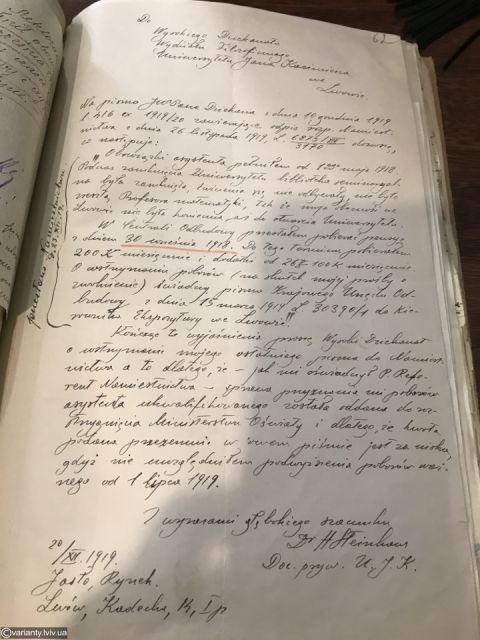 62
Do
Wysokiego Dziekanatu
Wydziału Filozoficznego
Uniwersytetu Jana Kazimierza
we
Lwowie.
Na pismo JWPana Dziekana z dnia 10 grudnia 1919
l. 416 ex 1919/20 zawierające odpis rozp. Namiest-
nictwa z dnia 26 listopada 1919, L. 6875/VII 3170 donoszę,
co następuje:
„Obowiązki asystenta pełniłem od 1go maja 1918.
Podczas zamknięcia Uniwersytetu biblioteka seminaryj-
na była zamknięta, ćwiczenia się nie odbywały, nie było
Profesora matematyki, tak że moja obecność we
Lwowie nie była konieczna aż do otwarcia Uniwersytetu.
W Centrali Odbudowy przestałem pobierać pensyę
z dniem 30 września 1918. Do tego terminu pobierałem
200 K miesięcznie i dodatki od 268-100 K miesięcznie
O wstrzymaniu poborów (na skutek mojej prośby o
zwolnienie) świadczy pismo Krajowego Urzędu Od-
budowy z dnia 15 marca 1919 L 30390/1 do Kie-
rownika Ekspozytury we Lwowie".
Kończąc to wyjaśnienie proszę Wysoki Dziekanat
o wstrzymanie mojego ostatniego pisma do Namiest-
nictwa a to dlatego, że – jak mi oświadczył P. Refe-
rent Namiestnictwa – sprawa przyznania mi poborów
asystenta ukwalifikowanego została oddana do roz-
strzygnięcia Ministerstwu Oświaty i dlatego, że kwota
podana przezemnie w owem piśmie jest za niska,
gdyż nie uwzględniłem podwyższenia poborów waż-
nego od 1 lipca 1919.
Z wyrazami głębokiego szacunku
Dr H Steinhaus
Doc. pryw. U. J. K.
20/XII. 1919.
Jasło, Rynek.
Lwów, Kadecka, 14, I p
varianty.lviv.ua